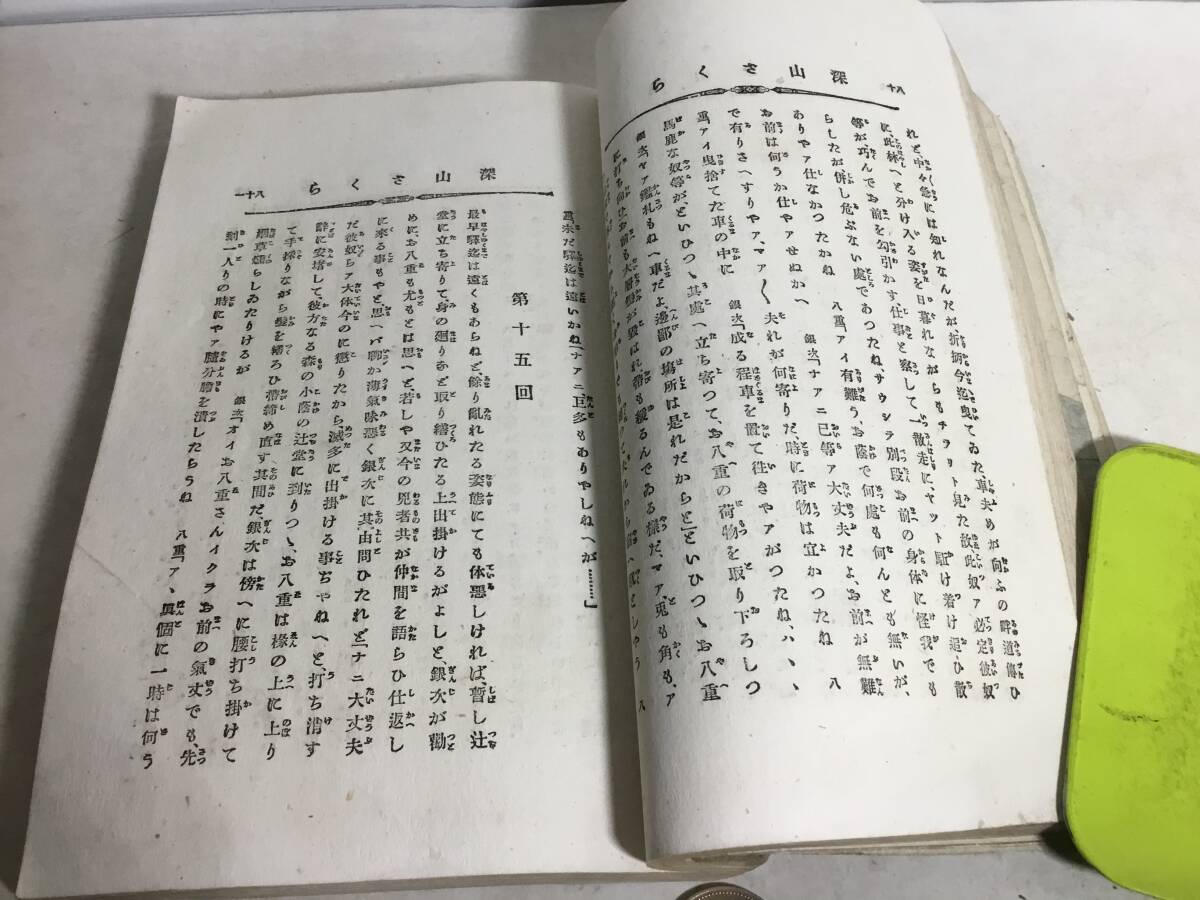 深山さくら
八十
れど中々急には知れなんだが折柄今迄曳てゐた車夫めが向ふの畔道傳ひ
に、此林へと分け入る姿を日暮れながらもチラリト見た故此奴ア必定彼奴
等が巧んでお前を勾引かす、仕事と察して一散走に、ヤット駈け着け追ひ散
らしたが、併し危ぶない處であつたね、サウシテ別段お前の身体に怪我でも
ありやア仕なかつたかね　八重「アイ有難う、お蔭で何處も何んとも無いが、
お前は何うか仕やアせぬかへ　銀次「ナアニ己等ア大丈夫だよ、お前が無難
で有りさへすりやア、マア〱夫れが何寄りだ時に荷物は宜かつたね　八
重「アイ曳捨てた車の中に　銀次「成る程車を置て往きやアがつたね、ハ、、
馬鹿な奴等が、といひつゝ其處へ立ち寄つて、お八重の荷物を取り下ろしつ
銀次「ヤア鑑札もねへ車だよ、邊鄙の塲所は是れだからと」といひつゝお八重
に打ち向ひ「お前も大層髪が毀はれ、帶も緩るんでゐる樣だ、マア、兎も角も、ア
深山さくら
八十一
重「未だ驛迄は遠いかね「ナアニ巨多もありやしねへが………」
第十五回
最早驛迄は遠くもあらねど、餘り亂れたる姿態にても体惡しければ、暫し辻
堂に立ち寄りて、身の廻りなど取り繕ひたる上出掛けるがよしと、銀次が勸
めに、お八重も尤もとは思へど、若しや又今の兇者共が仲間を語らひ仕返し
に來る事もやと、思へバ聊か薄氣味惡く銀次に其由問ひたれど「ナニ大丈夫
だ彼奴らア大体今のに懲りたから、滅多に出掛ける事ぢやねへと、打ち消す
辭に安堵して、彼方なる森の小蔭の辻堂に到りつゝ、お八重は椽の上に上り
て手探りながら髮を繕ろひ帶締め直す其間だ、銀次は傍へに腰打ち掛けて
烟草燻らしゐたりけるが　銀次「オイお八重さんイクラお前の氣丈でも、先
刻一人りの時にやア膽分膽を潰したらうね　八重「ア、眞個に一時は何う